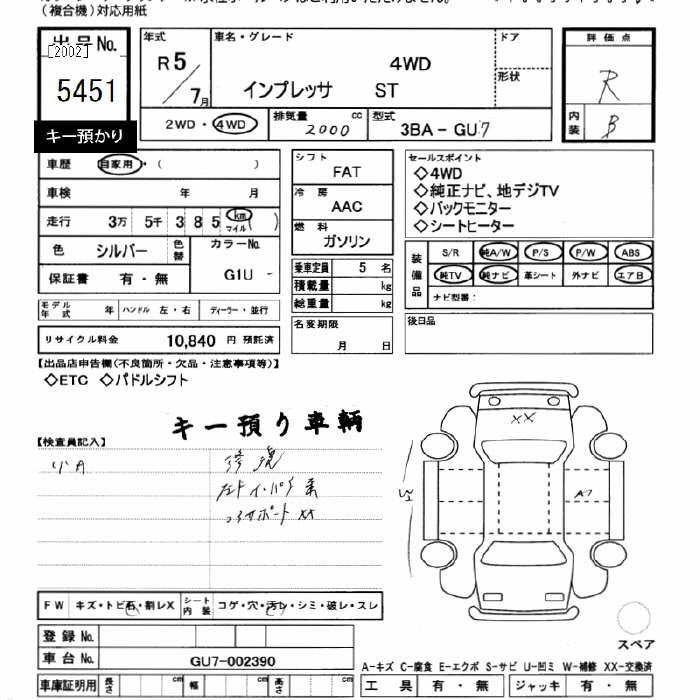 (複合機)対応用紙
出品No.
[2002]
5451
キー預かり
年式 R5/7月
車名・グレード 4WD
インプレッサ ST
ドア
形状
評価点
R
内装 B
2WD・4WD
排気量 2000 cc
型式 3BA-GU7
車歴 自家用・( )
車検 年 月
走行 3万 5千 3 8 5 km マイル ( )
色 シルバー 色替
カラーNo. G1U -
保証書 有・無
モデル年式 年 ハンドル 左・右 ディーラー・並行
リサイクル料金 10,840 円 預託済
シフト FAT
冷房 AAC
燃料 ガソリン
乗車定員 5 名
積載量 kg
総重量 kg
名変期限
月 日
セールスポイント
◇4WD
◇純正ナビ、地デジTV
◇バックモニター
◇シートヒーター
装備品
S/R 純A/W P/S P/W ABS
純TV 純ナビ 革シート 外ナビ エアB
ナビ型番:
後日品
【出品店申告欄(不良箇所・欠品・注意事項等)】
◇ETC ◇パドルシフト
キー預り車輌
【検査員記入】
小A
修復
コアサポートXX
XX
A1
FW キズ・トビ石・割レX シート内装 コゲ・穴・汚レ・シミ・破レ・スレ
登録No.
車台No. GU7-002390
車庫証明用 長さ cm 幅 cm 高さ cm
スペア
A-キズ C-腐食 E-エクボ S-サビ U-凹ミ W-補修 XX-交換済
工具 有・無 ジャッキ 有・無